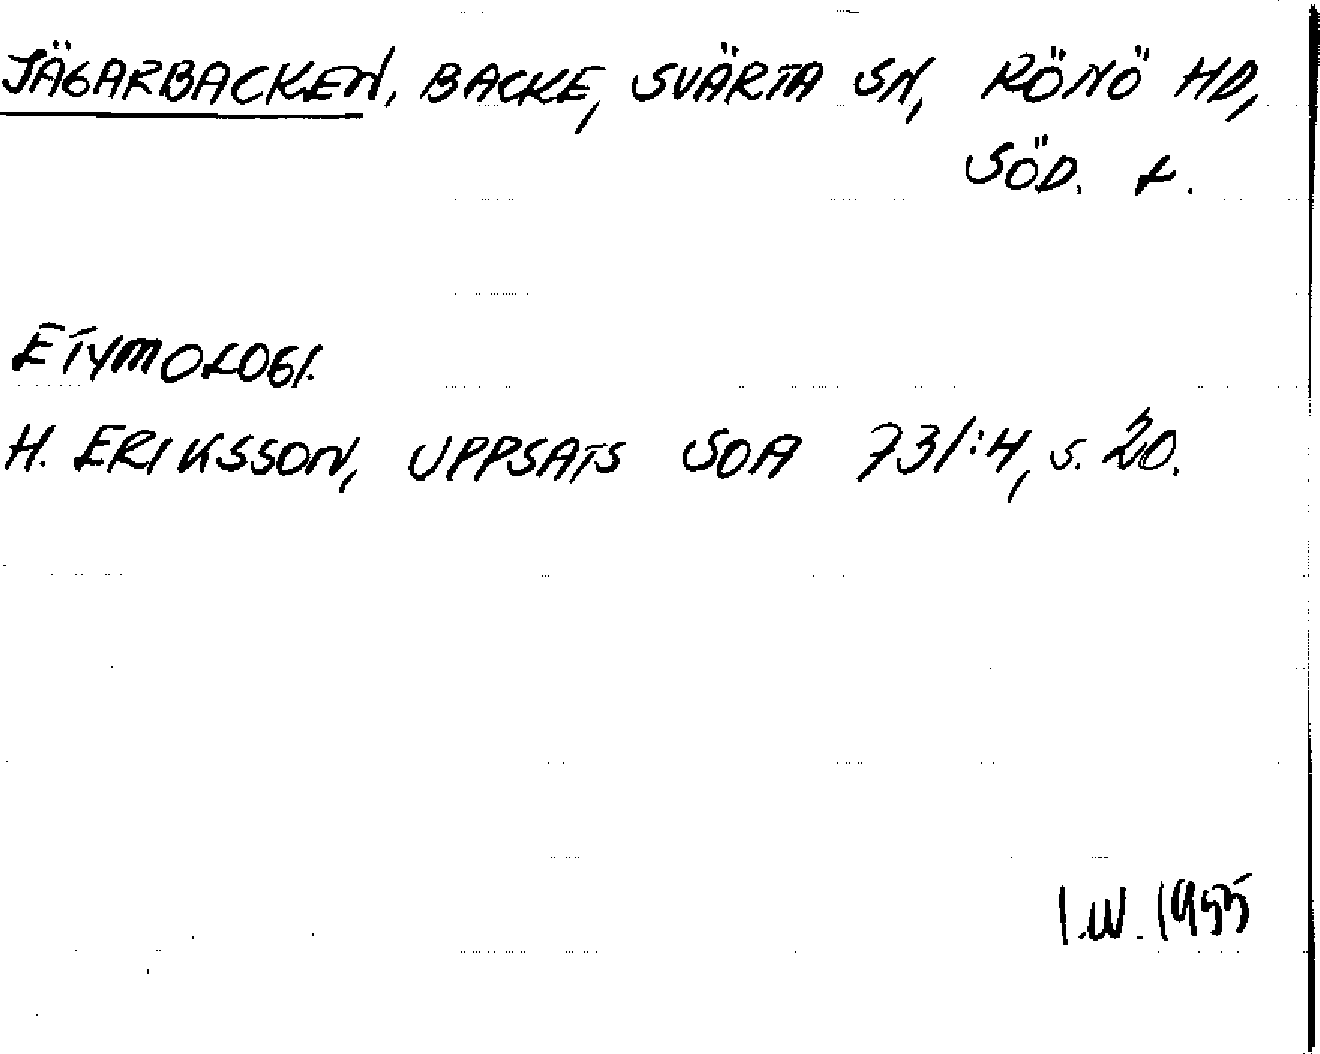 JÄGARBACKEN, BACKE, SVÄRTA SN, RÖNÖ HD,
SÖD. L.
ETYMOLOGI.
H. ERIKSSON, UPPSATS SOA 731:4, S. 20.
I.W. 1955